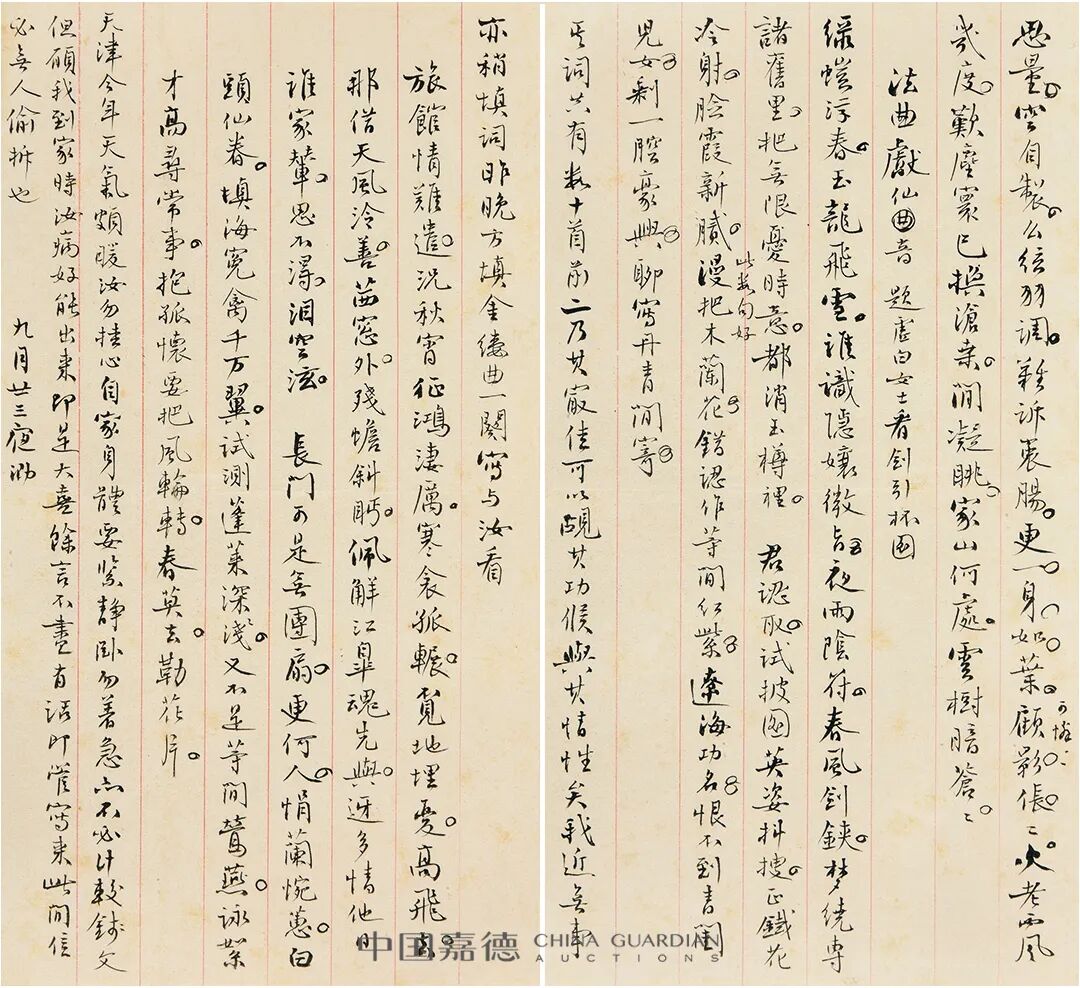 思量。空自製。幺弦羽調。難訴衷腸。更一身如葉。顧影倀〻。吹老西風
可憐
幾度。歎塵寰已換滄桑。閒凝眺。家山何處。雲樹暗蒼〻。
法曲獻仙音 題虛白女士看劍引杯圖
綠螘浮春。玉龍飛雪。誰識隱孃微旨。夜雨陰符。春風劍鋏。夢繞專
諸舊里。把無限憂時意。都消玉樽裡。 君認取。試披圖英姿抖擻。正鐵花
冷射。臉霞新膩。漫把木蘭花。錯認作等閒紅紫。遼海功名。恨不到青閨
此數句好
兒女。剩一腔豪興。聊寫丹青閒寄。
其詞共有數十首前二乃其最佳可以覘其功候與其情性矣我近無事
亦稍填詞昨晚方填金縷曲一闋寫与汝看
旅館情難遣。況秋宵征鴻淒厲。寒衾孤輾。覓地埋憂。高飛去。
那借天風泠善。茜窗外。殘蟾斜眄。佩解江皋魂先與。迓多情他日
誰家輦。思不得。淚空泫。 長門可是無團扇。更何人。悁蘭惋蕙。白
頭仙眷。填海冤禽千万翼。試測蓬萊深淺。又不是等閒鶯燕。詠絮
才高尋常事。抱孤懷要把風輪轉。春莫去。勒花片。
天津今年天氣頗暖汝勿挂心自家身體要緊靜卧勿著急亦不必計較錢文
但願我到家時汝病好能出來即是大喜餘言不盡有話即管寫來此間信
必無人偷拆也 九月廿三夜泐
中国嘉德 CHINA GUARDIAN AUCTIONS